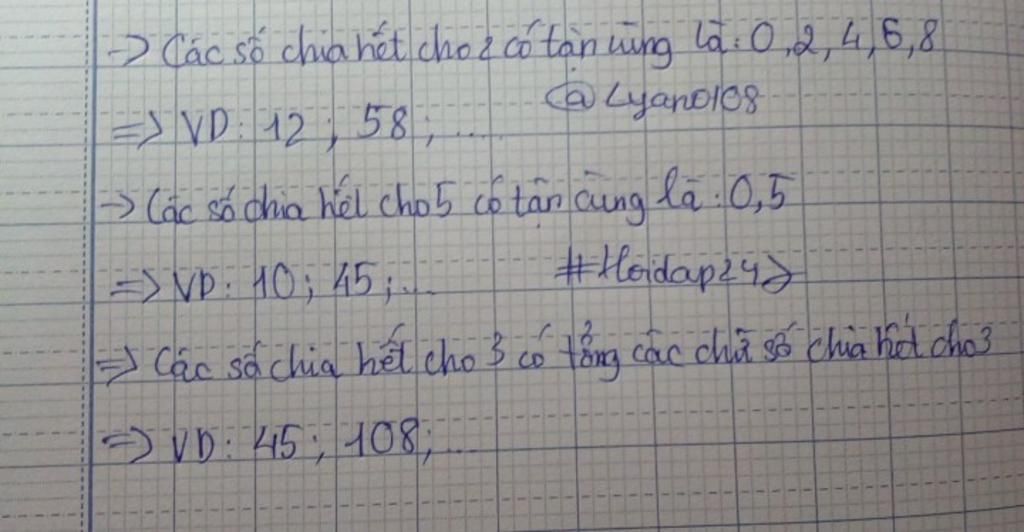 -> Các số chia hết cho 2 có tận cùng là: 0, 2, 4, 6, 8
@Lyano108
=> VD: 12; 58; ....
-> Các số chia hết cho 5 có tận cùng là: 0, 5
=> VD: 10; 45; ... #Hoidap247
=> Các số chia hết cho 3 có tổng các chữ số chia hết cho 3
=> VD: 45; 108; ...